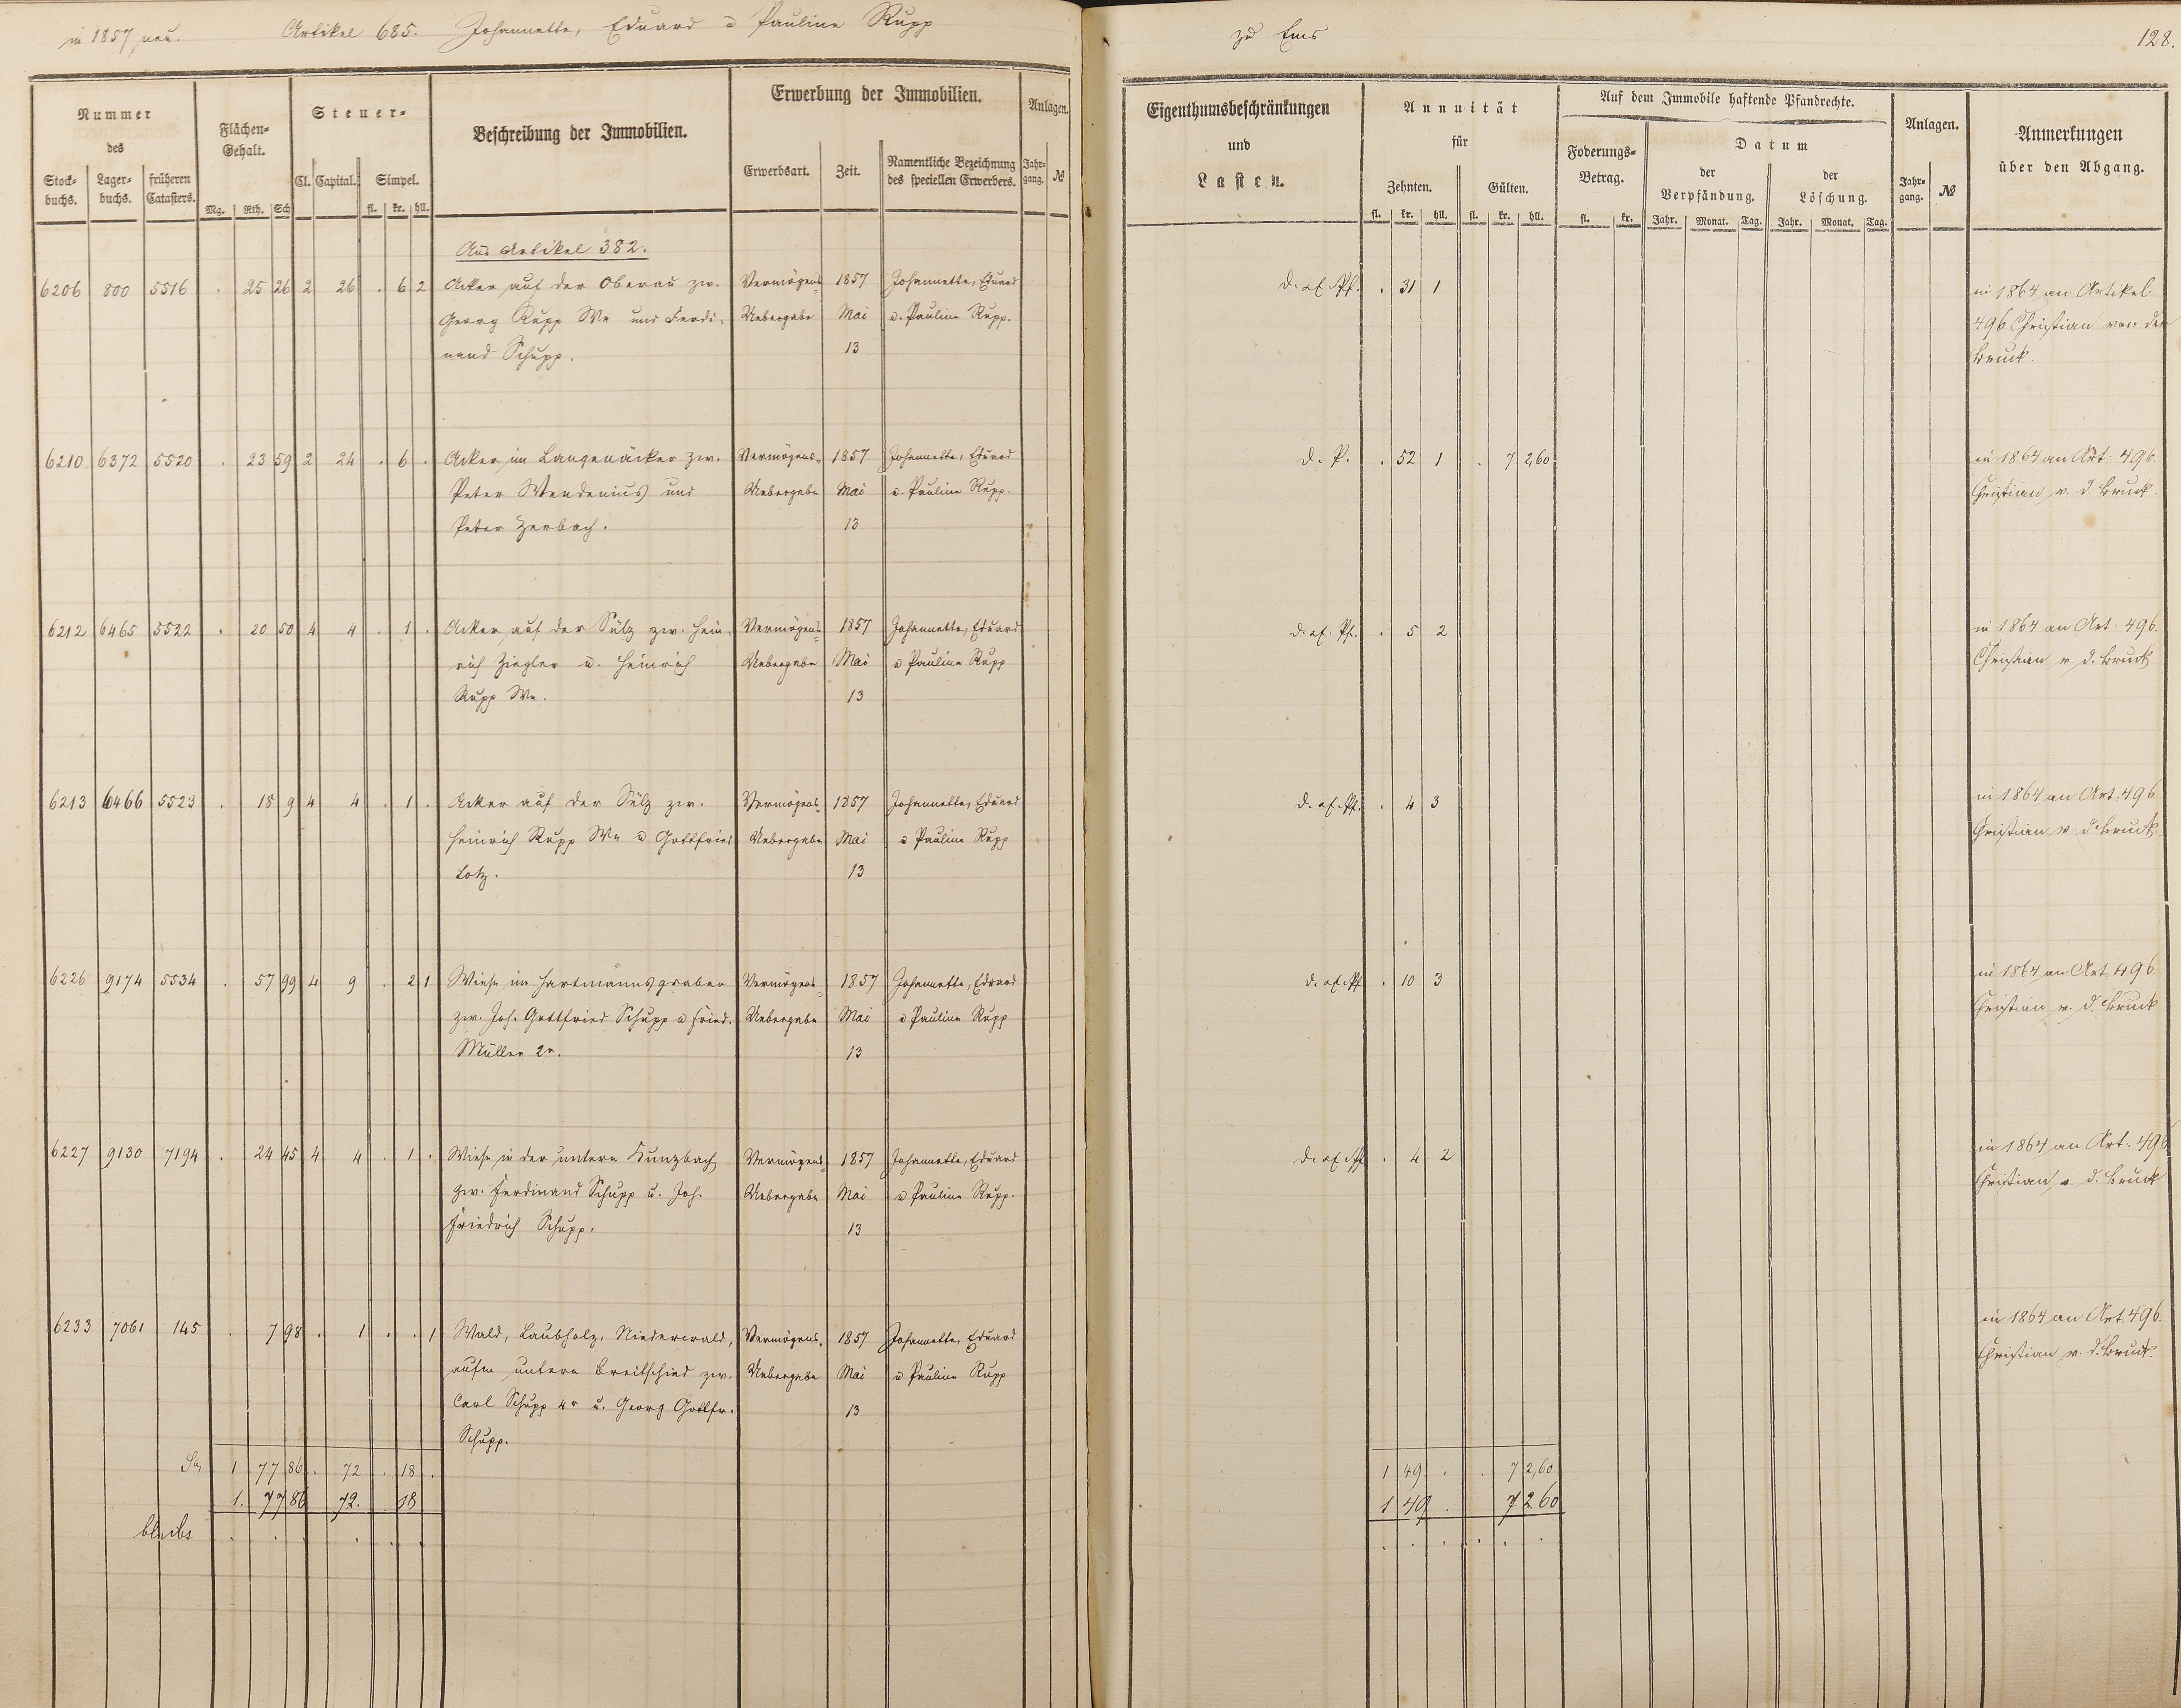 in 1857 neu. Artikel 685. Johannette, Eduard u Pauline Rupp
zu Ems 128.
Nummer des
Stock-buchs. Lager-buchs. früheren Catasters.
Flächen-Gehalt.
Mg. Rth. Sch
Steuer-
Cl. Capital. Simpel.
fl. kr. hll.
Beschreibung der Immobilien.
Erwerbung der Immobilien.
Erwerbsart. Zeit. Namentliche Bezeichnung des speciellen Erwerbers.
Anlagen.
Jahr-gang. №
Eigenthumsbeschränkungen
und
Lasten.
Annuität
für
Zehnten. Gülten.
fl. kr. hll. fl. kr. hll.
Auf dem Immobile haftende Pfandrechte.
Foderungs-Betrag.
fl. kr.
Datum
der Verpfändung. der Löschung.
Jahr. Monat. Tag. Jahr. Monat. Tag.
Anlagen.
Jahr-gang. №
Anmerkungen
über den Abgang.
Aus Artikel 382.
6206 800 5516 . 25 26 2 26 . 6 2 Acker auf der Oberau zw. Vermögens- 1857 Johannette, Eduard d. z. Pf. . 31 1 in 1864 an Artikel
Georg Rupp We und Ferdi- Uebergabe Mai u. Pauline Rupp. 496 Christian von der
nand Schupp. 13 Bruck.
6210 6372 5520 . 23 59 2 24 . 6 . Acker im Langenäcker zw. Vermögens- 1857 Johannette, Eduard d. P. . 52 1 . 7 2,60 in 1864 an Art. 496.
Peter Wendenius und Uebergabe Mai u. Pauline Rupp. Christian v. d. Bruck.
Peter Herbach. 13
6212 6465 5522 . 20 50 4 4 . 1 . Acker auf der Sülz zw. Hein- Vermögens- 1857 Johannette, Eduard d. z. Pf. . 5 2 in 1864 an Art. 496.
rich Ziegler u. Heinrich Uebergabe Mai u Pauline Rupp Christian v. d. Bruck
Rupp We. 13
6213 6466 5523 . 18 9 4 4 . 1 . Acker auf der Sülz zw. Vermögens- 1857 Johannette, Eduard d. z. Pf. . 4 3 in 1864 an Art. 496
Heinrich Rupp We u Gottfried Uebergabe Mai u Pauline Rupp Christian v. d. Bruck
Lotz. 13
6226 9174 5534 . 57 99 4 9 . 2 1 Wiese im Hartmannsgraben Vermögens- 1857 Johannette, Eduard d. z. Pf . 10 3 in 1864 an Art. 496.
zw. Joh. Gottfried Schupp u Fried. Uebergabe Mai u Pauline Rupp Christian v. d. Bruck
Müller 2r. 13
6227 9130 7194 . 24 45 4 4 . 1 . Wiese in der untern Kunzbach Vermögens- 1857 Johannette, Eduard d. z. Pf . 4 2 in 1864 an Art. 496
zw. Ferdinand Schupp u. Joh. Uebergabe Mai u Pauline Rupp. Christian v. d. Bruck
Friedrich Schupp. 13
6233 7061 145 . 7 98 . 1 . . 1 Wald, Laubholz, Niederwald, Vermögens- 1857 Johannette, Eduard in 1864 an Art. 496.
aufm untern Breitschied zw. Uebergabe Mai u Pauline Rupp Christian v. d. Bruck.
Carl Schupp 4r u. Georg Gottfr. 13
Schupp.
Sa, 1 77 86 . 72 . 18 . 1 49 . . 7 2,60
1. 77 86 72. 18 1 49 . 7 2 60
bleibt . . . . . . . . . . . .